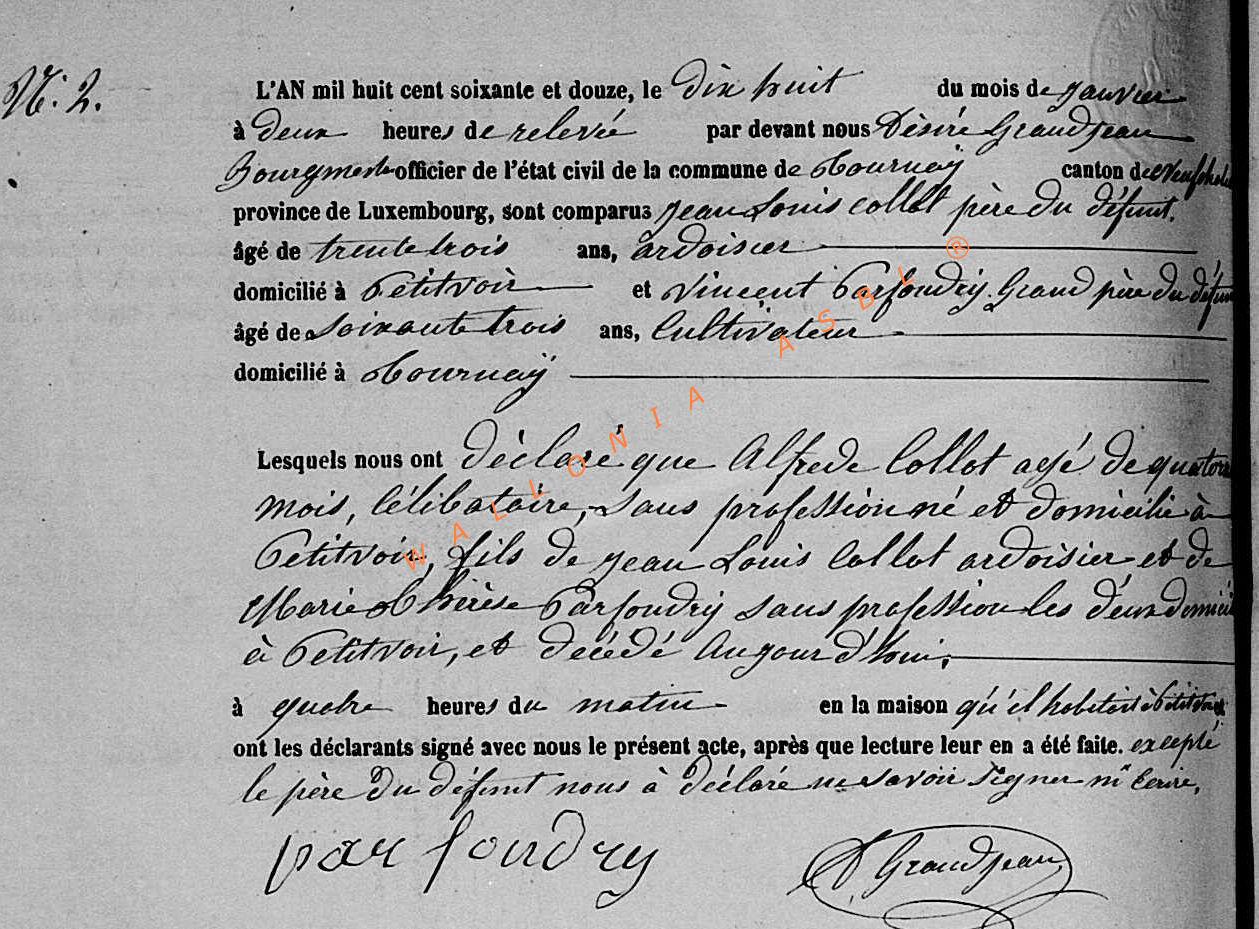 N.° 2.
L'AN mil huit cent soixante et douze, le dix huit du mois de janvier
à deux heures de relevée par devant nous Désiré Grandjean
Bourgmestre officier de l'état civil de la commune de Tournaÿ canton de Neufchate
province de Luxembourg, sont comparus Jean Louis Collot père du défunt.
âgé de trente trois ans, ardoisier
domicilié à Petitvoir et Vincent Parfondrÿ Grand père du défun
âgé de soixante trois ans, Cultivateur
domicilié à Tournaÿ
Lesquels nous ont déclaré que Alfrede Collot agé de quatorz
mois, Célibataire, sans profession né et domicilié à
Petitvoir, fils de Jean Louis Collot ardoisier et de
Marie Thérèse Parfondrÿ sans profession les deux domicil
à Petitvoir, et décédé Aujourd'hui,
à quatre heures du matin en la maison qu'il habitait à Petitvoir
ont les déclarants signé avec nous le présent acte, après que lecture leur en a été faite. excepté
le père du défunt nous à déclaré ne savoir signer ni Ecrire.
parfondry D. Grandjean
WALLONIA ASBL ®